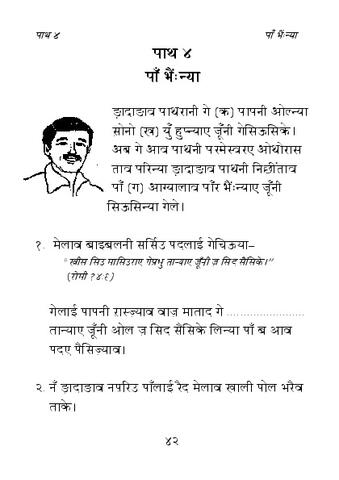 पाथ ४ पाँ भैंःन्या
पाथ ४
पाँ भैंःन्या
ङादाङाव पाथरानी गे (क) पापनी ओल्न्या
सोनो (ख) युँ हुप्न्याए जूँनी गेसिऊसिके।
अब गे आव पाथनी परमेस्वरए ओथोरास
ताव परिन्या ङादाङाव पाथनी निछींताव
पाँ (ग) आग्यालाव पाँर भैंःन्याए जूँनी
सिऊसिन्या गेले।
१. मेलाव बाइबलनी सर्सिउ पदलाई गेचिऊया–
"ख्रीस सिउ मासिउराए गेप्रभु तान्याए जूँनी ज़ सिद सैंसिके।"
(रोमी १४:९)
गेलाई पापनी रास्ज्याव वाज़ माताद गे ........................
तान्याए जूँनी ओल ज़ सिद सैंसिके लिन्या पाँ ब आव
पदए पैंसिज्याव।
२. नँ ङादाङाव नपरिउ पाँलाई रैद मेलाव खाली पोल भरैव
ताके।
४२